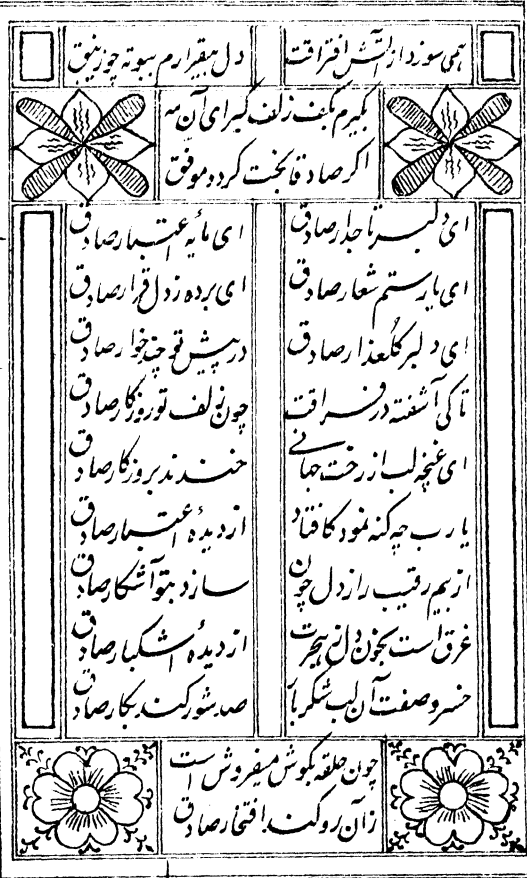 همی سوزد از آتش افتراقت دل بیقرارم ببوته چو زنبق
بگیرم بکف زلف گیرای آن مه
اگر صادقا بخت گردد موفق
ای دلبر تاجدار صادق ای مایه اعتبار صادق
ای یار ستم شعار صادق ای برده ز دل قرار صادق
ای دلبر گلعذار صادق در پیش تو چند خوار صادق
تا کی آشفته در فراقت چون زلف تو روزگار صادق
ای غنچه لب از رخت جهانی خندند بروزگار صادق
یا رب چه گنه نمود کافتاد از دیده اعتبار صادق
از بیم رقیب راز دل چون سازد بتو آشکار صادق
غرق است بخون دل ز هجرت از دیدهٔ اشکبار صادق
خسرو صفت آن لب شکربار صد شور کند بکار صادق
چون حلقه بگوش میفروش است
زآن رو کند افتخار صادق